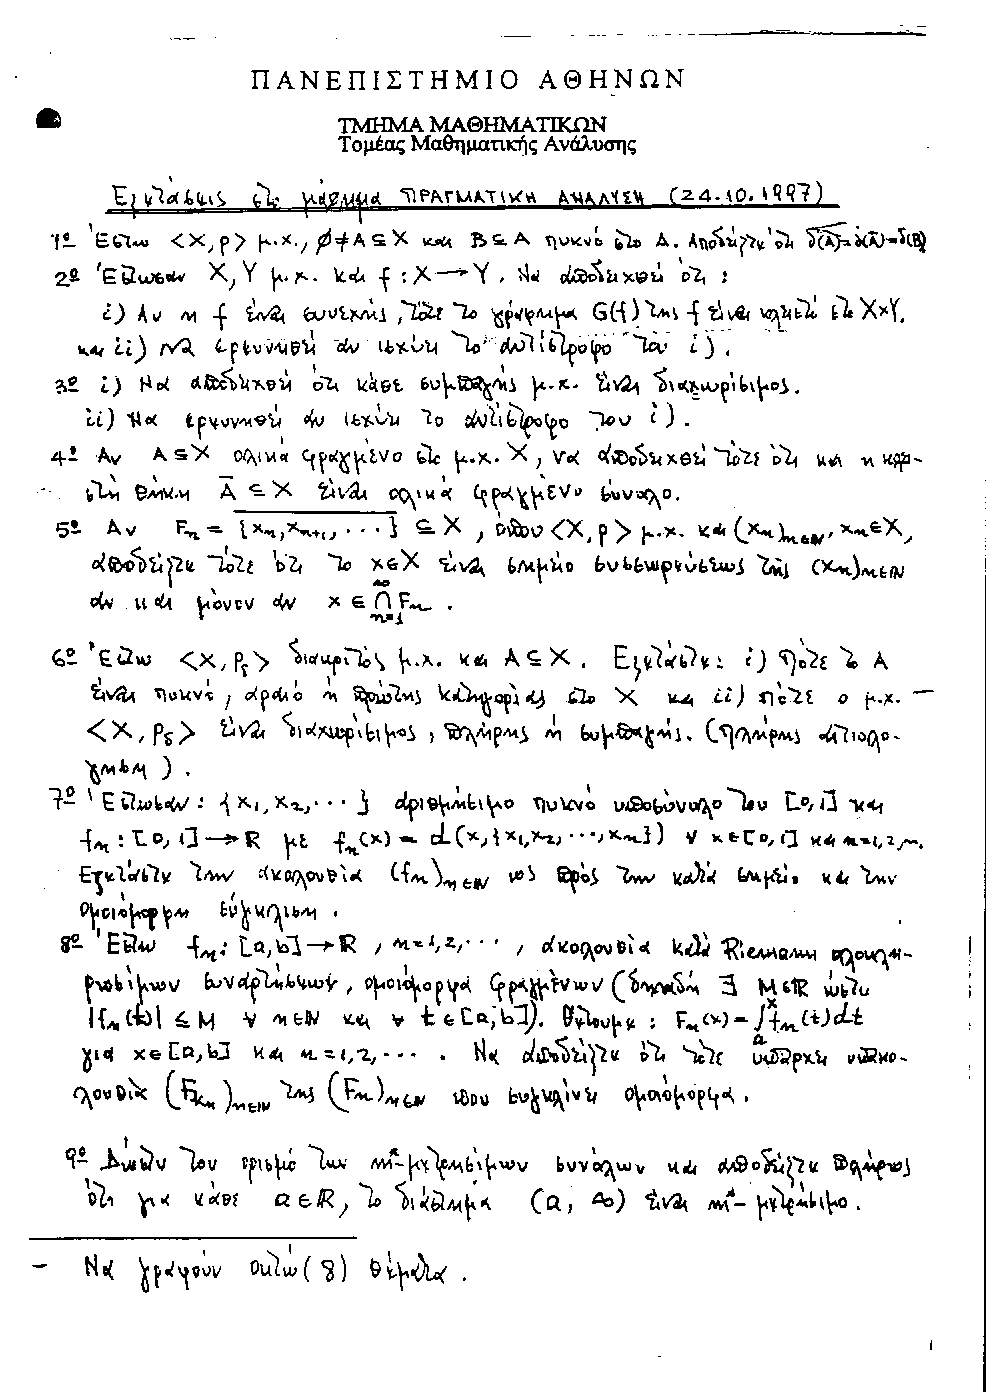 ΠΑΝΕΠΙΣΤΗΜΙΟ ΑΘΗΝΩΝ
ΤΜΗΜΑ ΜΑΘΗΜΑΤΙΚΩΝ
Τομέας Μαθηματικής Ανάλυσης
Εξετάσεις στο μάθημα ΠΡΑΓΜΑΤΙΚΗ ΑΝΑΛΥΣΗ (24.10.1997)
1º Έστω <X, ρ> μ.χ., ∅≠A⊆X και B⊆A πυκνό στο A. Αποδείξτε ότι δ(A)=δ(Ā)=δ(B)
2º Έστωσαν X, Y μ.χ. και f : X→Y. Να αποδειχθεί ότι :
i) Αν η f είναι συνεχής, τότε το γράφημα G(f) της f είναι κλειστό στο X×Y,
και ii) να ερευνηθεί αν ισχύει το αντίστροφο του i).
3º i) Να αποδειχθεί ότι κάθε συμπαγής μ.χ. είναι διαχωρίσιμος.
ii) Να ερευνηθεί αν ισχύει το αντίστροφο του i).
4º Αν A⊆X ολικά φραγμένο στο μ.χ. X, να αποδειχθεί τότε ότι και η κλει-
στή θήκη Ā ⊆ X είναι ολικά φραγμένο σύνολο.
5º Αν Fₙ = \overline{{xₙ, xₙ₊₁, ...}} ⊆ X, όπου <X, ρ> μ.χ. και (xₙ)ₙ∈ℕ, xₙ∈X,
αποδείξτε τότε ότι το x∈X είναι σημείο συσσωρεύσεως της (xₙ)ₙ∈ℕ
αν και μόνον αν x ∈ ⋂_{n=1}^{∞} Fₙ .
6º Έστω <X, ρ_δ> διακριτός μ.χ. και A⊆X. Εξετάστε: i) Πότε το A
είναι πυκνό, αραιό ή πρώτης κατηγορίας στο X και ii) πότε ο μ.χ.
<X, ρ_δ> είναι διαχωρίσιμος, πλήρης ή συμπαγής. (Πλήρης αιτιολο-
γηση).
7º Έστωσαν: {x₁, x₂, ...} αριθμήσιμο πυκνό υποσύνολο του [0,1] και
fₙ : [0,1]→ℝ με fₙ(x) = d(x,{x₁,x₂,...,xₙ}) ∀ x∈[0,1] και n=1,2,...
Εξετάστε την ακολουθία (fₙ)ₙ∈ℕ ως προς την κατά σημείο και την
ομοιόμορφη σύγκλιση.
8º Έστω fₙ: [a,b]→ℝ, n=1,2,..., ακολουθία κατά Riemann ολοκλη-
ρωσίμων συναρτήσεων, ομοιόμορφα φραγμένων (δηλαδή ∃ M∈ℝ ώστε
|fₙ(t)| ≤ M ∀ n∈ℕ και ∀ t∈[a,b]). Θέτουμε : Fₙ(x)=∫ₐˣ fₙ(t)dt
για x∈[a,b] και n=1,2,.... Να αποδείξετε ότι τότε υπάρχει υπακο-
λουθία (F_{kₙ})ₙ∈ℕ της (Fₙ)ₙ∈ℕ που συγκλίνει ομοιόμορφα.
9º Δώστε τον ορισμό των m*-μετρησίμων συνόλων και αποδείξτε πλήρως
ότι για κάθε a∈ℝ, το διάστημα (a, ∞) είναι m*-μετρήσιμο.
- Να γραφούν οκτώ (8) θέματα.